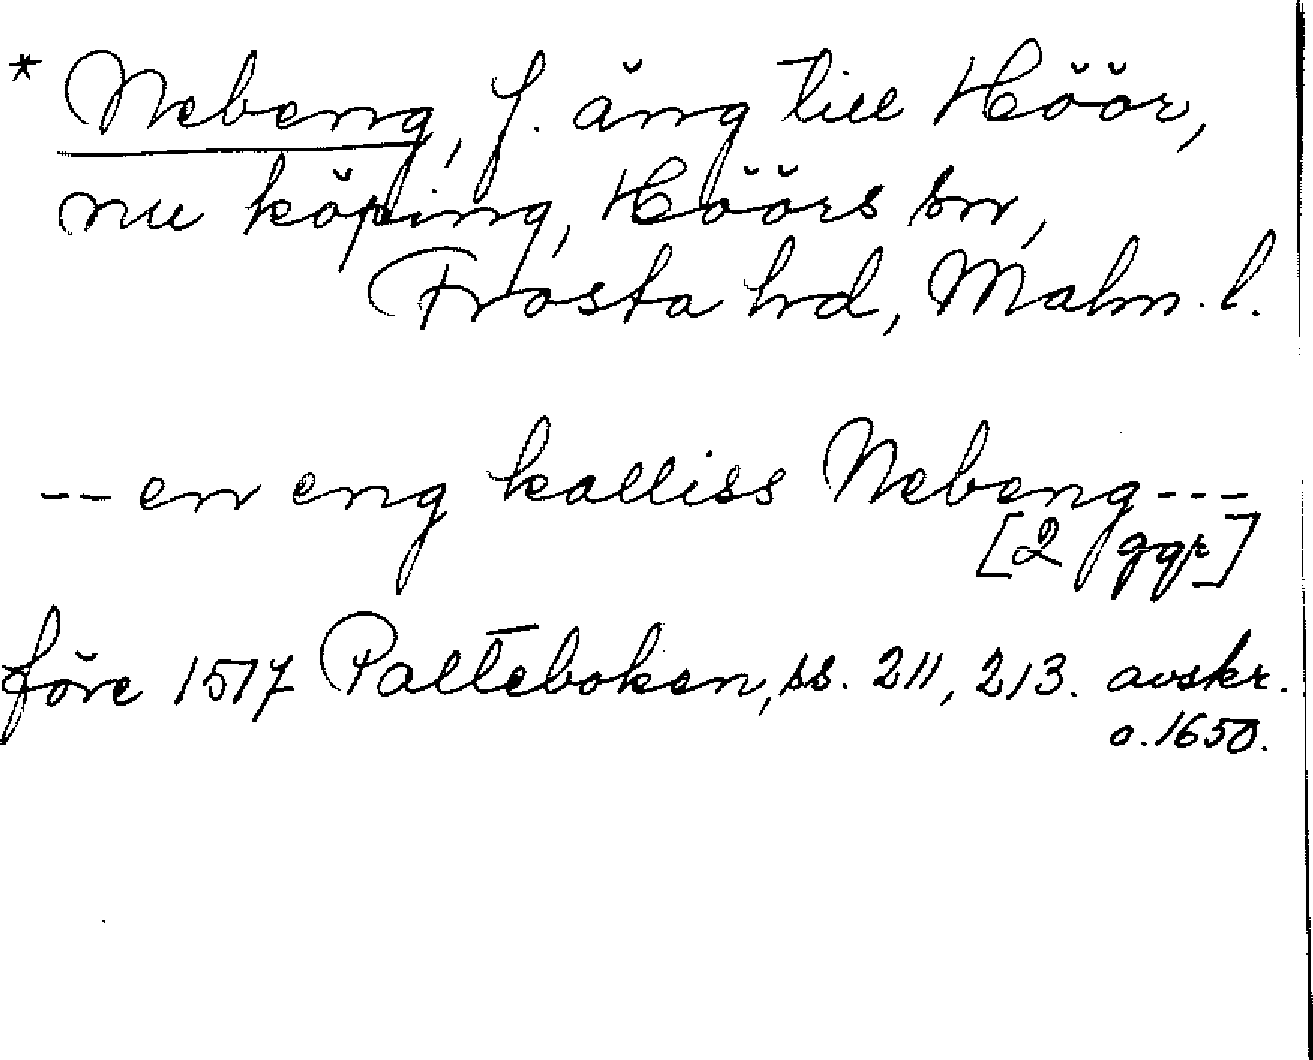 * Nebeng, f. äng till Höör,
nu köping, Höörs sn,
Frosta hd, Malm. l.
-- en eng kalliss Nebeng ---
[2 ggr]
före 1517 Palteboken, ss. 211, 213. avskr.
o. 1650.